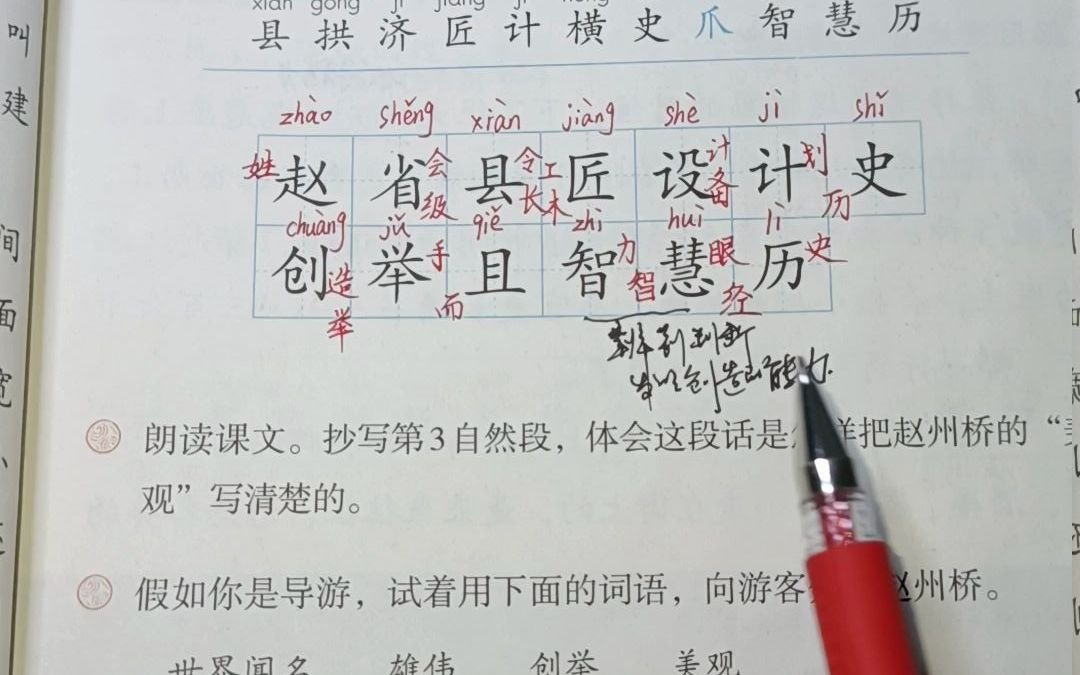 xiàn gǒng jì jiàng jì héng
县 拱 济 匠 计 横 史 爪 智 慧 历
zhào shěng xiàn jiàng shè jì shǐ
姓 赵 省 会 级 县 令 长 工 木 匠 设 计 备 计 划 历 史
chuàng jǔ qiě zhì huì lì
创 造 举 举 手 而 且 智 力 智 慧 眼 历 史 经
辨别判断
发明创造的能力.
朗读课文。抄写第3自然段，体会这段话是怎样把赵州桥的“
观”写清楚的。
假如你是导游，试着用下面的词语，向游客 赵州桥。
世界闻名 雄伟 创举 美观
叫
建
间
面
宽